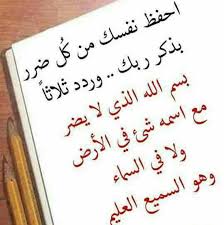 احفظ نفسك من كُل ضرر
بذكر ربك .. وردد ثلاثاً
بسم الله الذي لا يضر
مع اسمه شئ في الأرض
ولا في السماء
وهو السميع العليم